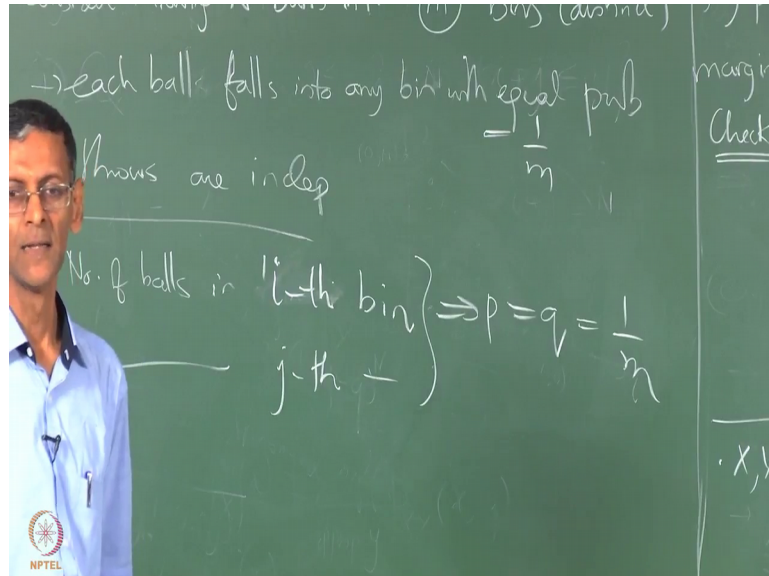 balls in (m) Bins (distinct)
→ each balls falls into any bin with equal prob
= 1/m
Throws are indep
No. of balls in i-th bin } ⇒ p = q = 1/m
j-th —
margin
Check
. X, Y
NPTEL